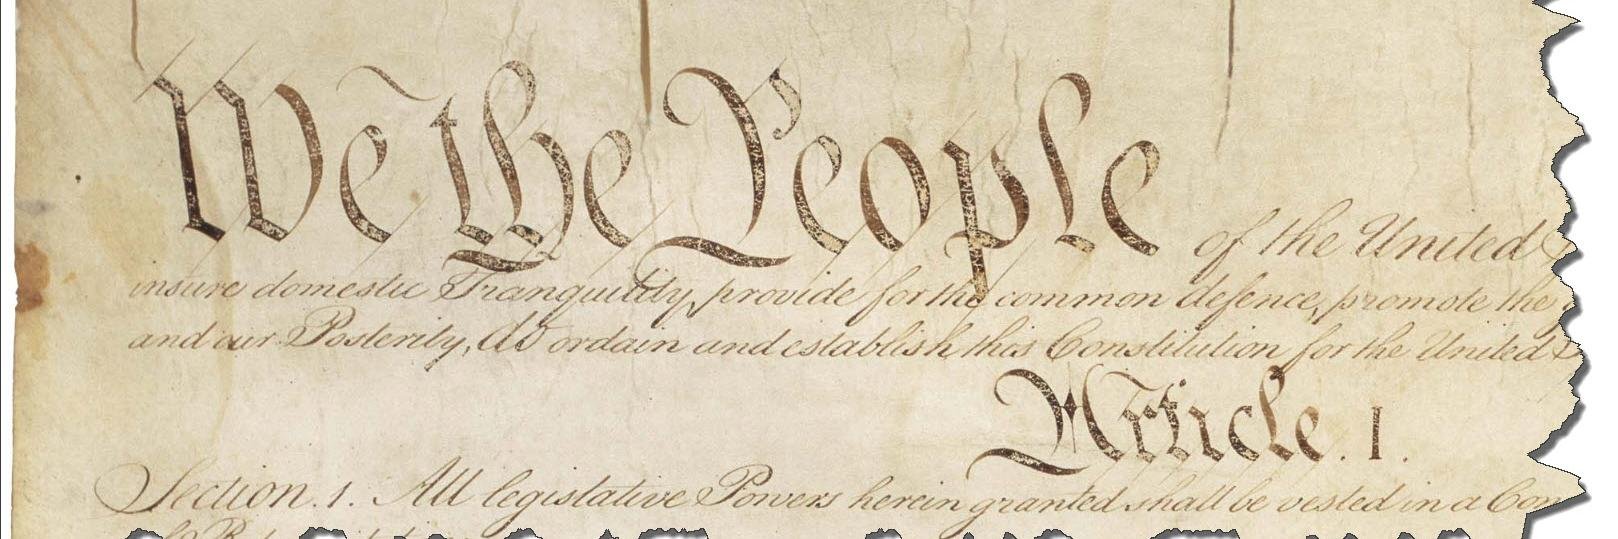 We the People of the United
insure domestic Tranquility, provide for the common defence, promote the
and our Posterity, do ordain and establish this Constitution for the United
Article. I.
Section. 1. All legislative Powers herein granted shall be vested in a Con